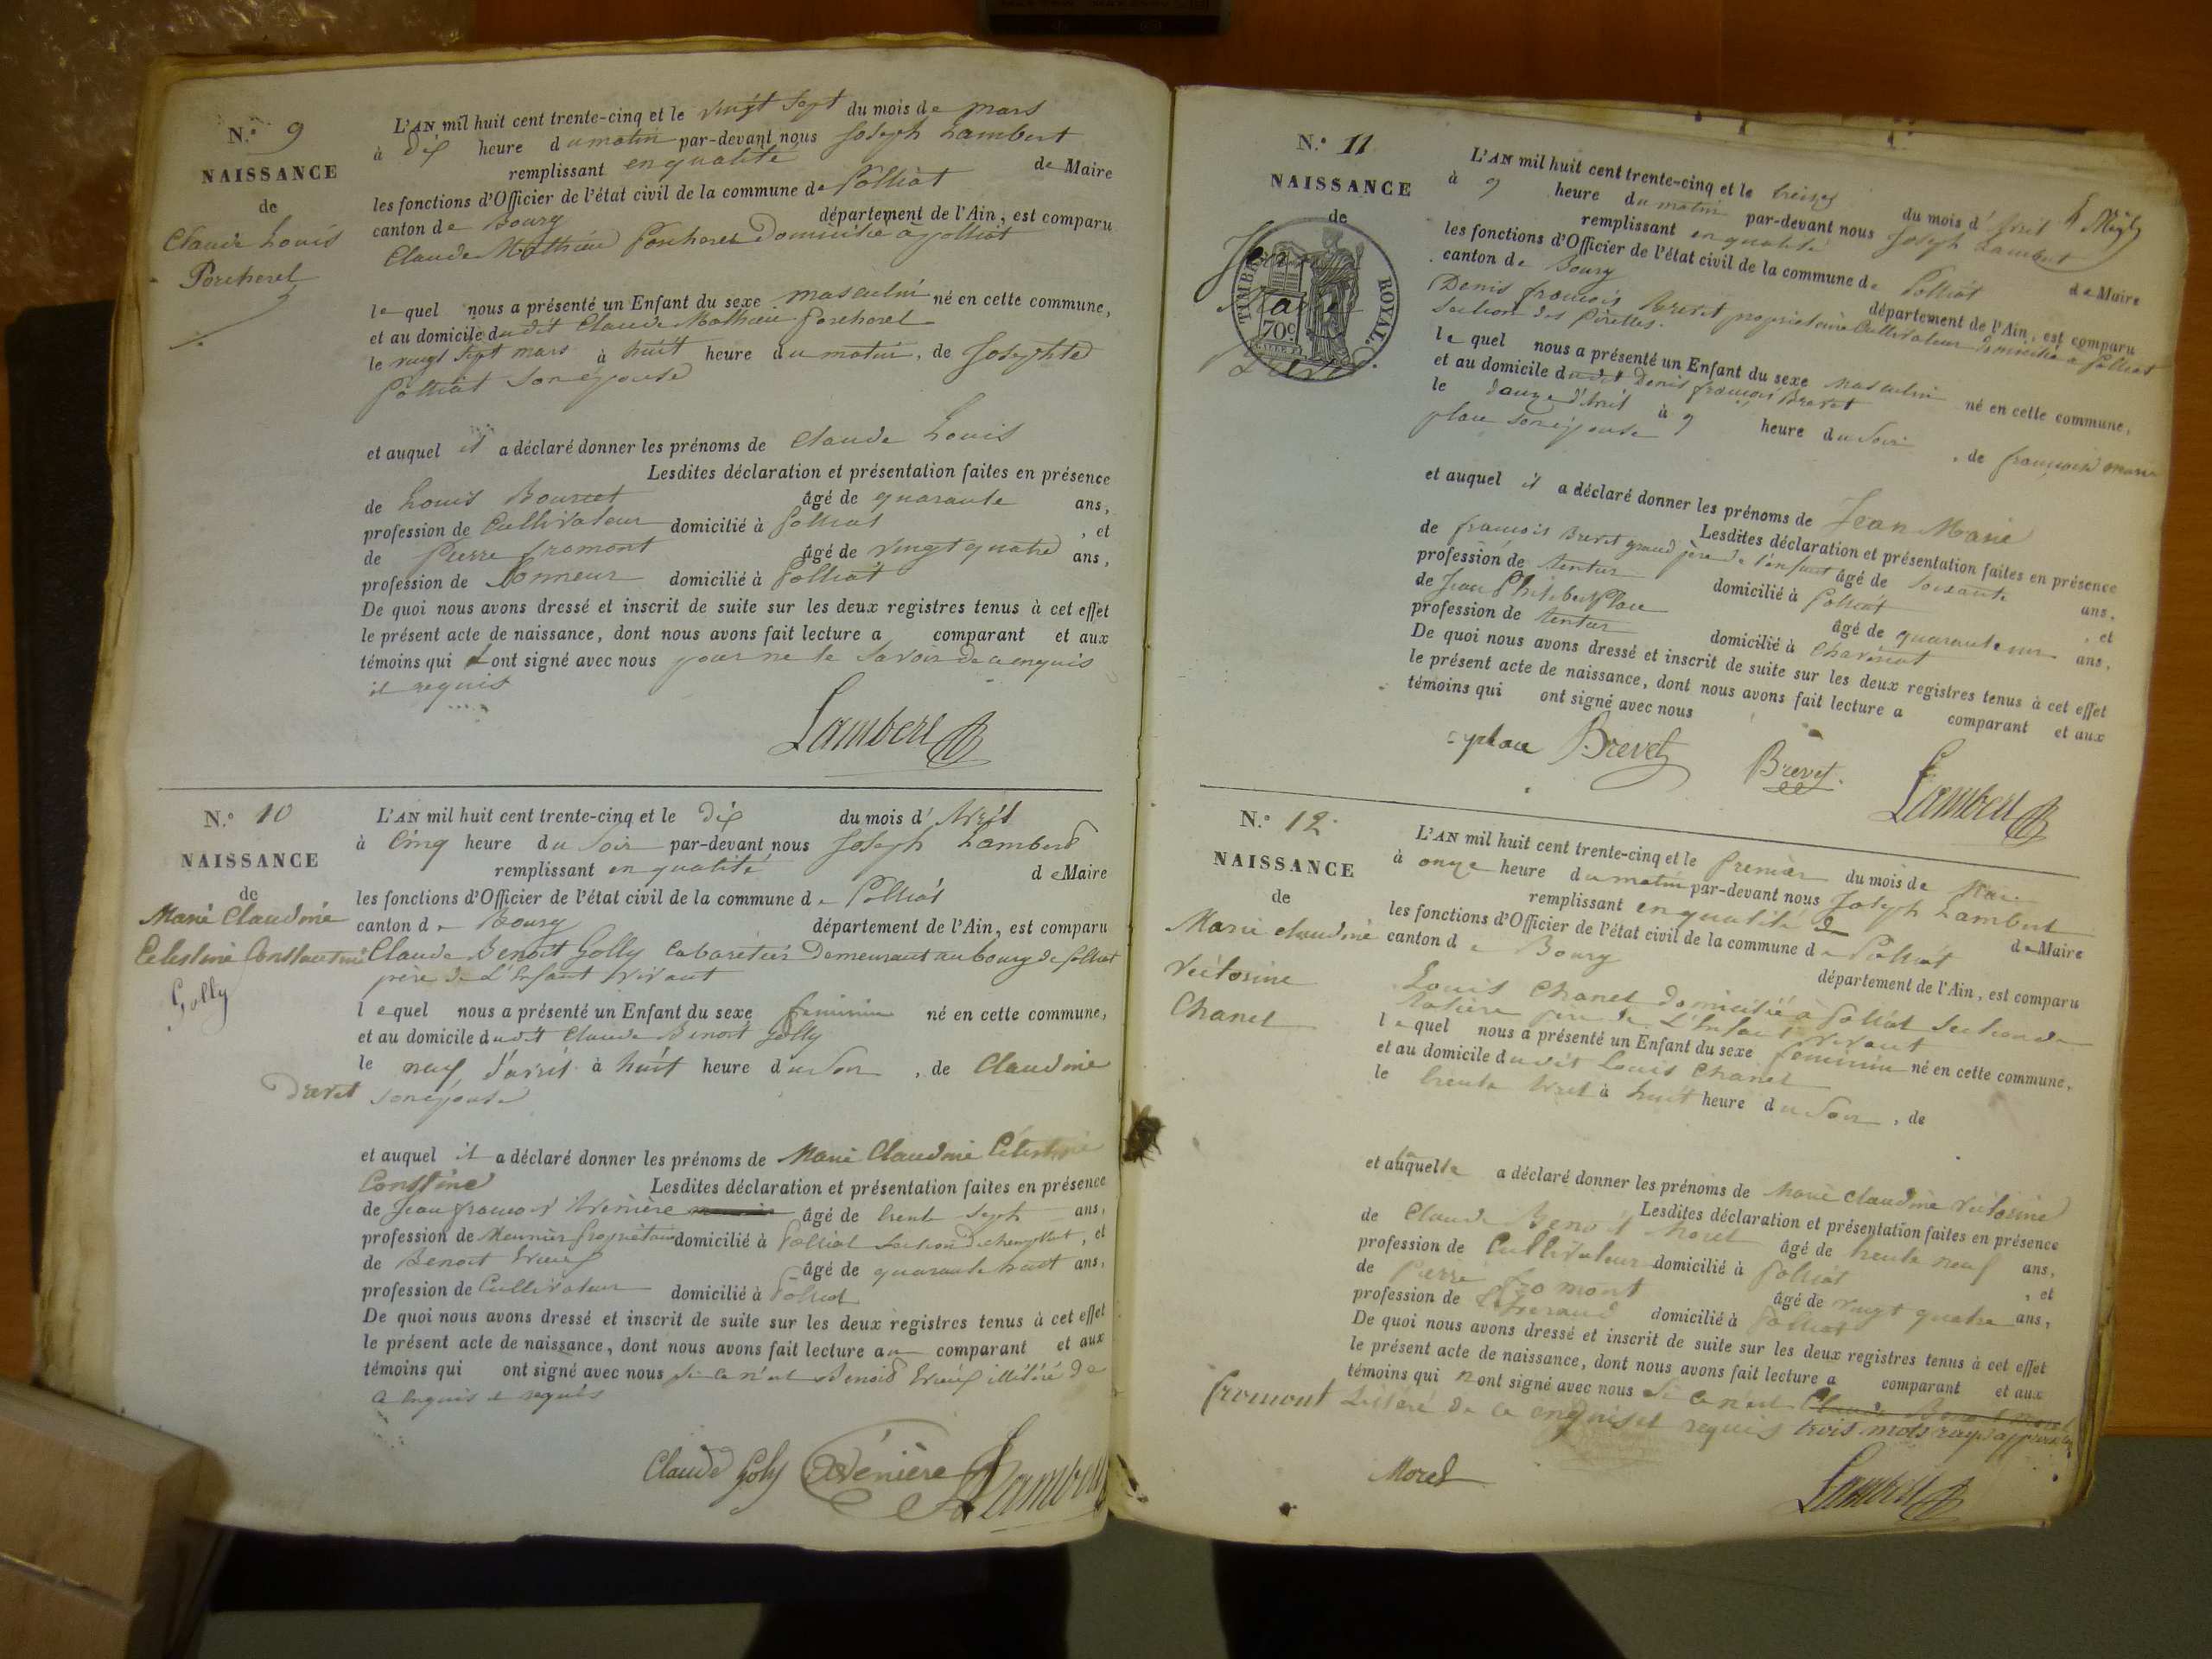 N.° 9
NAISSANCE
de
Claude Louis
Porcheret
L'AN mil huit cent trente-cinq et le vingt sept du mois de mars
à dix heure du matin par-devant nous Joseph Lambert
remplissant en qualité de Maire
les fonctions d'Officier de l'état civil de la commune de Polliat
canton de Bourg département de l'Ain, est comparu
Claude Mathieu Porcheret domicilié à polliat
le quel nous a présenté un Enfant du sexe masculin né en cette commune,
et au domicile dudit Claude Mathieu Porcheret
le vingt sept mars à huit heure du matin, de Josephte
Polliat son épouse
et auquel il a déclaré donner les prénoms de Claude Louis
Lesdites déclaration et présentation faites en présence
de Louis âgé de quarante ans,
profession de Cultivateur domicilié à Polliat, et
de Pierre fromont âgé de vingt quatre ans,
profession de domicilié à Polliat
De quoi nous avons dressé et inscrit de suite sur les deux registres tenus à cet effet
le présent acte de naissance, dont nous avons fait lecture a comparant et aux
témoins qui ont signé avec nous pour ne le savoir de ce enquis
et requis
Lambert
N.° 10
NAISSANCE
de
Marie Claudine
Celestine Constantine
Golly
L'AN mil huit cent trente-cinq et le dix du mois d'Avril
à Cinq heure du soir par-devant nous Joseph Lambert
remplissant en qualité de Maire
les fonctions d'Officier de l'état civil de la commune de Polliat
canton de Bourg département de l'Ain, est comparu
Claude Benoit Golly Cabaretier Demeurant au bourg de polliat
père de L'Enfant vivant
lequel nous a présenté un Enfant du sexe feminin né en cette commune,
et au domicile dudit Claude Benoit Golly
le neuf d'avril à huit heure du Soir, de Claudine
Drevet son épouse
et auquel il a déclaré donner les prénoms de Marie Claudine Célestine
Lesdites déclaration et présentation faites en présence
de Jean francois âgé de trente sept ans,
profession de Meunier propriétaire domicilié à Polliat section de, et
de Benoit âgé de quarante huit ans,
profession de Cultivateur domicilié à Polliat
De quoi nous avons dressé et inscrit de suite sur les deux registres tenus à cet effet
le présent acte de naissance, dont nous avons fait lecture au comparant et aux
témoins qui ont signé avec nous si ce n'est Benoit illitéré de
ce enquis et requis
Claude Goly Lambert
N.° 11
NAISSANCE
de
Jean
Marie
TIMBRE ROYAL
70c.
L'AN mil huit cent trente-cinq et le treize du mois d'Avril
à 9 heure du matin par-devant nous Joseph Lambert
remplissant en qualité de Maire
les fonctions d'Officier de l'état civil de la commune de Polliat
canton de Bourg département de l'Ain, est comparu
Denis françois Brevet propriétaire Cultivateur domicilié a Polliat
Section des
le quel nous a présenté un Enfant du sexe masculin né en cette commune,
et au domicile dudit Denis françois Brevet
le douze d'Avril à 9 heure du Soir, de françoise marie
place son épouse
et auquel il a déclaré donner les prénoms de Jean Marie
Lesdites déclaration et présentation faites en présence
de françois Brevet grand père de l'enfant âgé de soixante ans,
profession de rentier domicilié à Polliat, et
de Jean Philibert Place âgé de quarante un ans,
profession de rentier domicilié à
De quoi nous avons dressé et inscrit de suite sur les deux registres tenus à cet effet
le présent acte de naissance, dont nous avons fait lecture a comparant et aux
témoins qui ont signé avec nous
place Brevet Brevet Lambert
N.° 12
NAISSANCE
de
Marie claudine
Victorine
Chanel
L'AN mil huit cent trente-cinq et le premier du mois de Mai
à onze heure du matin par-devant nous Joseph Lambert
remplissant en qualité de Maire
les fonctions d'Officier de l'état civil de la commune de Polliat
canton de Bourg département de l'Ain, est comparu
Louis Chanel domicilié à Polliat section de
père de L'Enfant vivant
lequel nous a présenté un Enfant du sexe feminin né en cette commune,
et au domicile dudit Louis Chanel
le trente Avril à huit heure du Soir, de
et auquel a déclaré donner les prénoms de Marie Claudine Victorine
Lesdites déclaration et présentation faites en présence
de Claude Benoit Morel âgé de trente neuf ans,
profession de Cultivateur domicilié à Polliat, et
de Pierre fromont âgé de vingt quatre ans,
profession de domicilié à Polliat
De quoi nous avons dressé et inscrit de suite sur les deux registres tenus à cet effet
le présent acte de naissance, dont nous avons fait lecture a comparant et aux
témoins qui n ont signé avec nous si ce n'est Claude Benoit Morel
fromont de ce enquis et requis trois mots rayés
Morel
Lambert